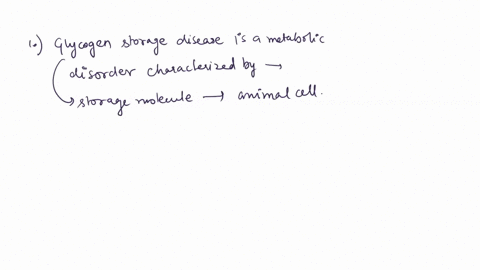 1.) Glycogen storage disease is a metabolic
disorder characterized by →
storage molecule → animal cell.